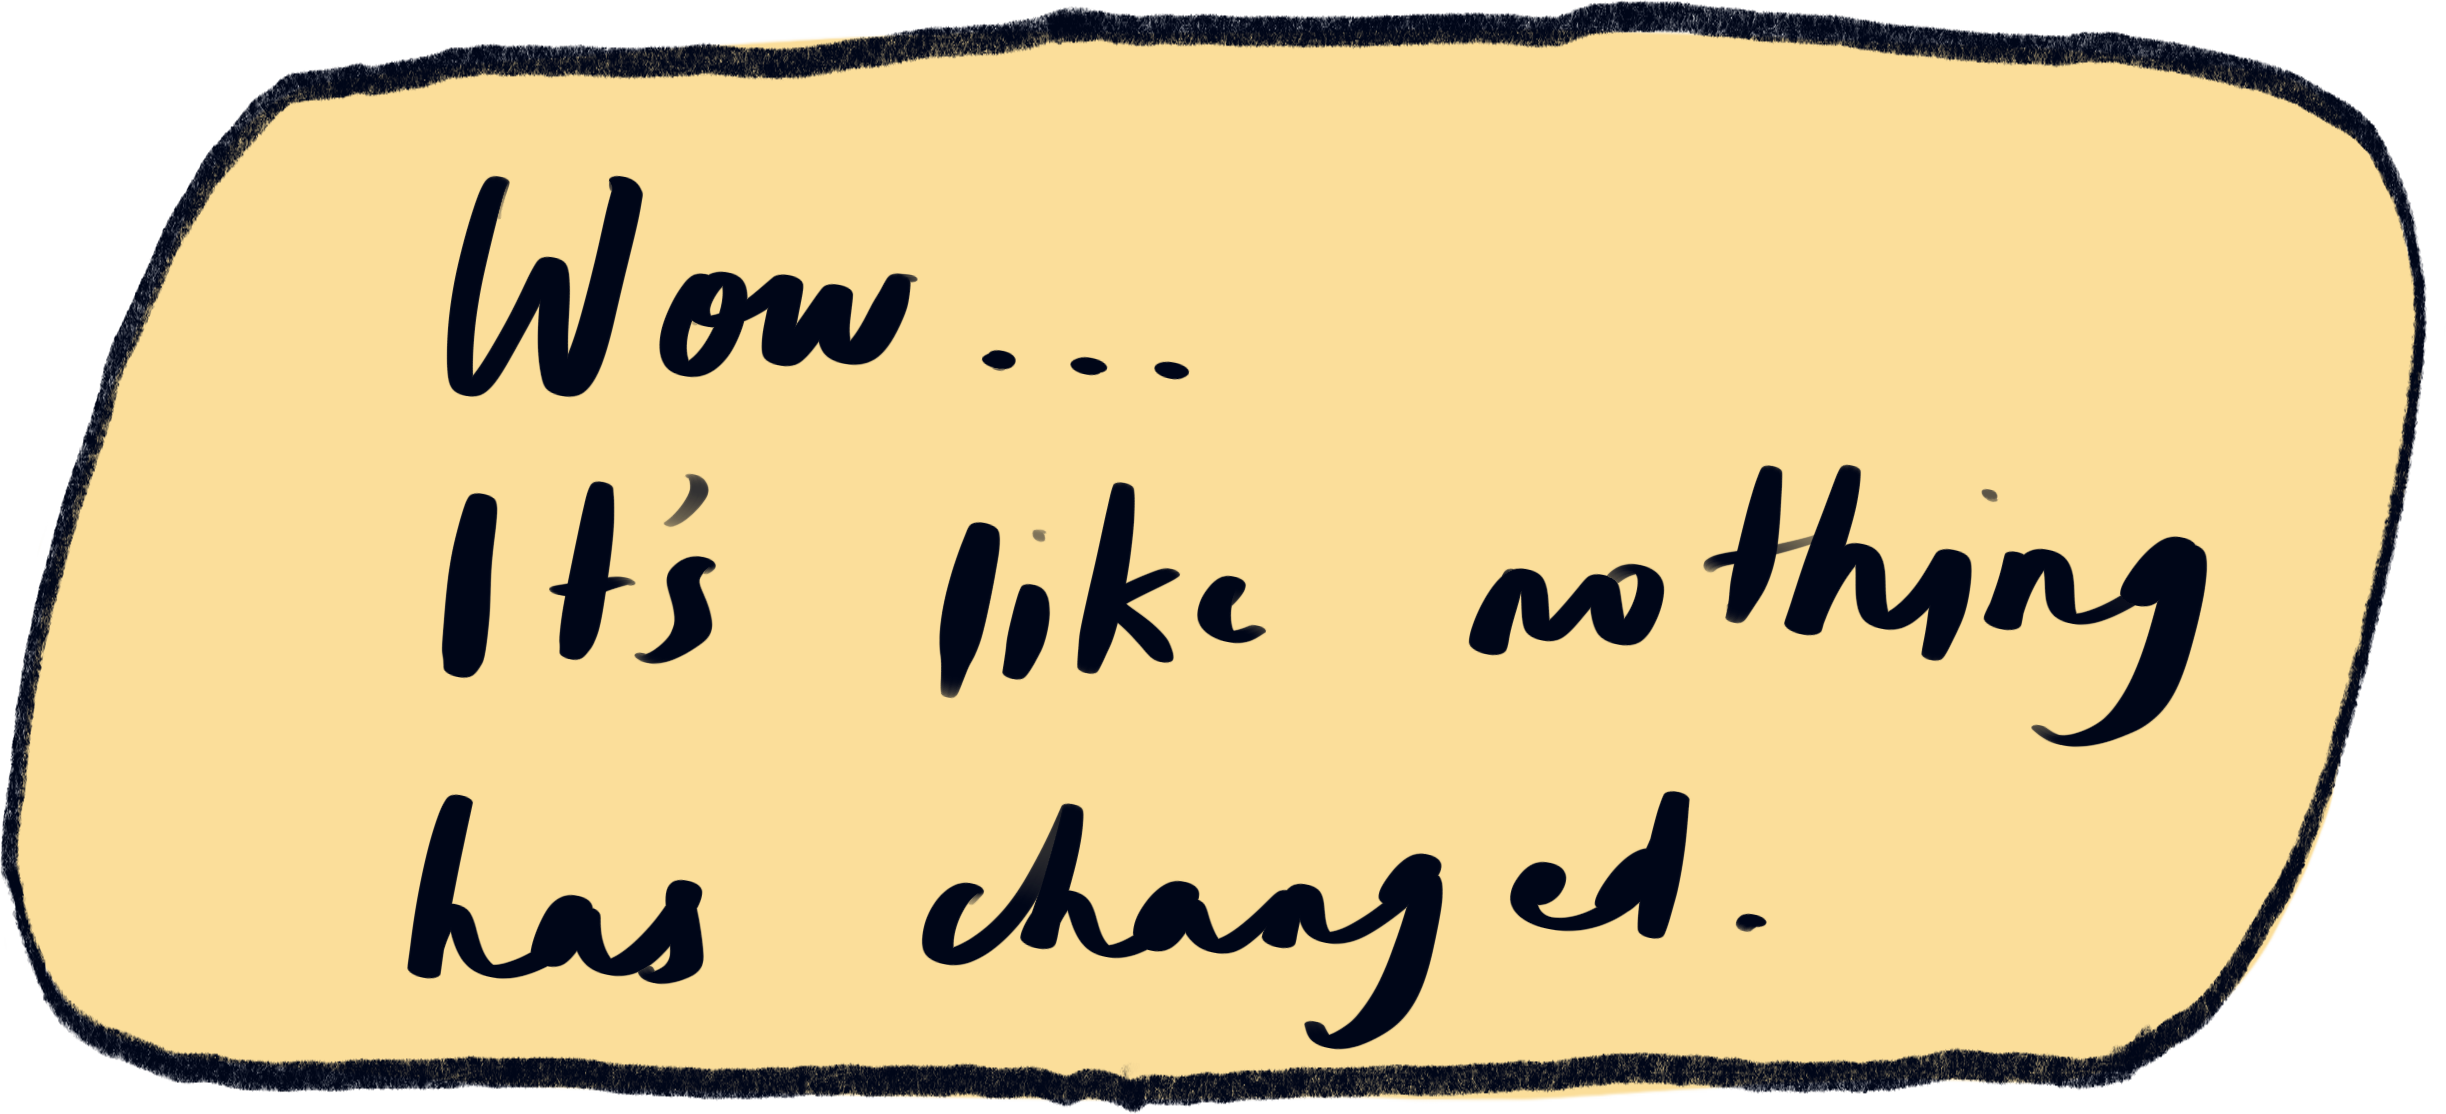 Wow...
It's like nothing
has changed.